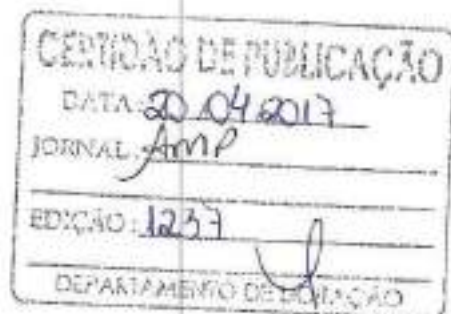 CERTIDÃO DE PUBLICAÇÃO
DATA: 20.04.2017
JORNAL: AMP
EDIÇÃO: 1237
DEPARTAMENTO DE